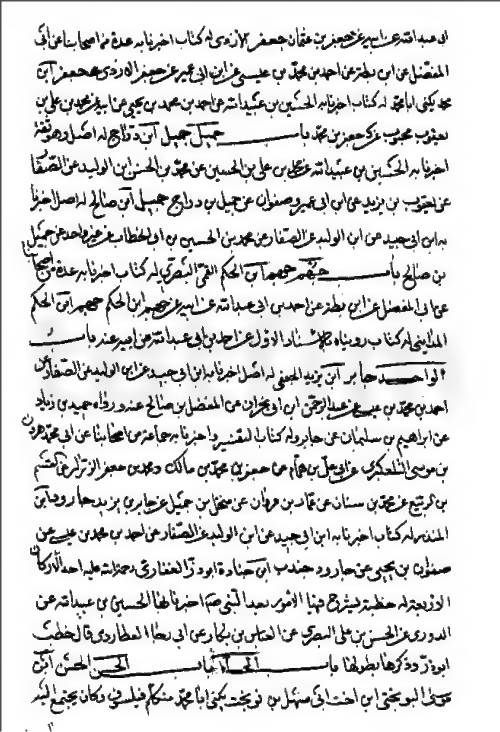 ابى عبد الله عن ابيه عن جعفر بن عثمان جعفر الازدى له كتاب اخبرنا به عدة من اصحابنا عن ابى
المفضل عن ابن بطة عن احمد بن محمد بن عيسى عن ابن ابى عمير عن جعفر الازدى جعفر ابن
محمد يكنى ابا محمد له كتاب اخبرنا به الحسين بن عبيد الله عن احمد بن محمد بن يحيى عن ابيه عن محمد بن على بن
محبوب عن جعفر بن محمد باب جميل جميل ابن دراج له اصل وهو ثقة
اخبرنا به الحسين بن عبيد الله عن محمد بن على بن الحسين عن محمد بن الحسن ابن الوليد عن الصفار
عن يعقوب بن يزيد عن ابن ابى عمير وصفوان عن جميل بن دراج جميل ابن صالح له اصل اخبرنا
به ابن ابى جيد عن ابن الوليد عن الصفار عن محمد بن الحسين بن ابى الخطاب عن غير واحد عن جميل
بن صالح باب جهيم جهيم ابن الحكم القمى البصرى له كتاب اخبرنا به عدة من اصحابنا
عن ابى المفضل عن ابن بطة عن احمد بن ابى عبد الله عن ابيه عن جهيم ابن الحكم جهيم ابن الحكم
المداينى له كتاب رويناه بالاسناد الاول عن احمد بن ابى عبد الله عن ابيه عنه باب
الواحد جابر ابن يزيد الجعفى له اصل اخبرنا به ابن ابى جيد عن ابن الوليد عن الصفار عن
احمد بن محمد بن عيسى عن عبد الرحمن ابن ابى نجران عن المفضل بن صالح عنه ورواه حميد بن زياد
عن ابراهيم بن سليمان عن جابر وله كتاب التفسير واخبرنا به جماعة من اصحابنا عن ابى محمد هرون
بن موسى التلعكبرى عن ابى على بن همام عن جعفر بن محمد بن مالك ومحمد بن جعفر الرزاز عن القسم
بن الربيع عن محمد بن سنان عن عمار بن مروان عن منخل بن جميل عن جابر بن يزيد جارود ابن
المنذر له كتاب اخبرنا به ابن ابى جيد عن ابن الوليد عن الصفار عن احمد بن محمد بن عيسى عن
صفوان بن يحيى عن جارود جندب ابن جنادة ابو ذر الغفارى رحمة الله عليه احد الاركان
الاربعة له خطبة يشرح فيها الامور بعد النبى ص اخبرنا بها الحسين بن عبيد الله عن
الدورى عن الحسن بن على البصرى عن العباس بن بكار عن ابى رجا العطاردى قال خطب
ابو ذر وذكرها بطولها باب الحا باب الحسن الحسن ابن
موسى النوبختى ابن اخت ابى سهل بن نوبخت يكنى ابا محمد متكلم فيلسوف وكان يجتمع اليه